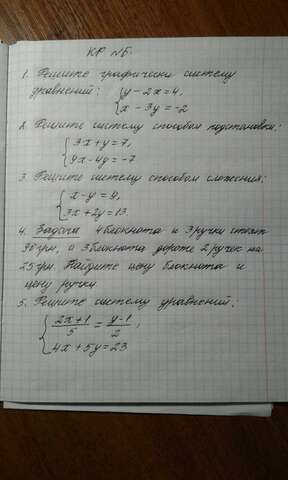 КР №5.
1. Решите графически систему
уравнений: { y - 2x = 4,
x - 3y = -2
2. Решите систему способом подстановки:
{ 3x + y = 7,
9x - 4y = -7
3. Решите систему способом сложения:
{ x - y = 9,
3x + 2y = 13.
4. Задача 4 блокнота и 3 ручки стоят
56 грн, а 3 блокнота дороже 2 ручек на
25 грн. Найдите цену блокнота и
цену ручки.
5. Решите систему уравнений:
{ (2x + 1)/5 = (y - 1)/2,
4x + 5y = 23